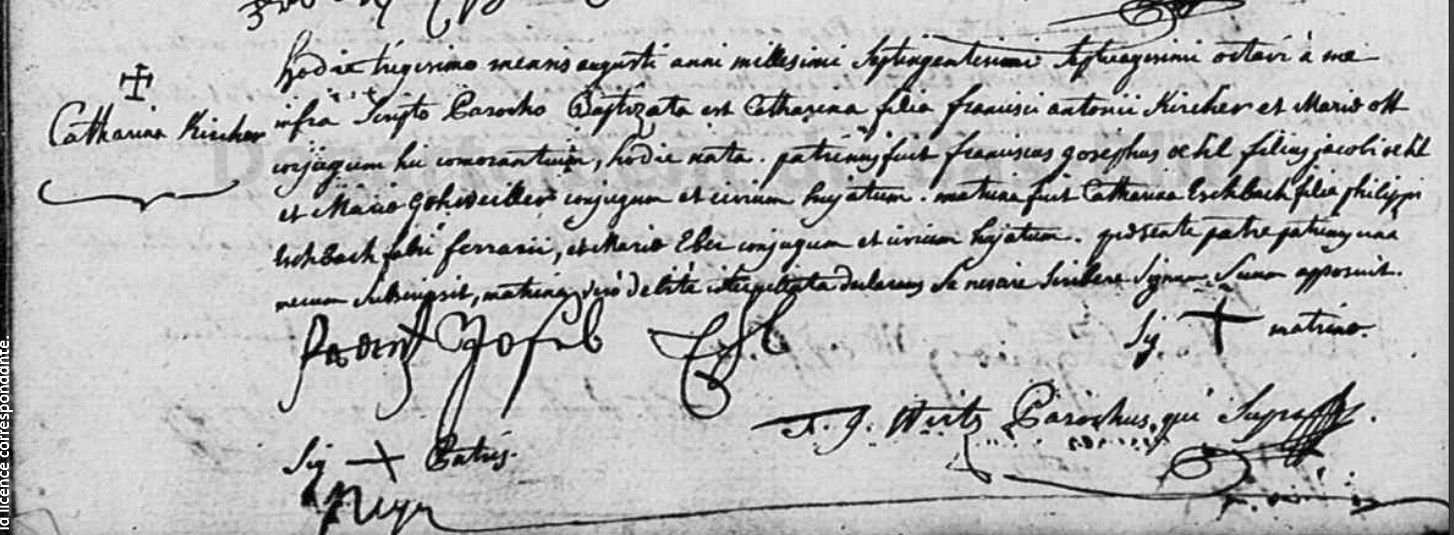 Catharina Kircher
hodie trigesimo mensis augusti anni millesimi septingentesimi septuagesimi octavi à me
infra scripto Parocho Baptizata est Catharina filia francisci antonii Kircher et Mariæ ott
conjugum hic comorantium, hodie nata. patrinus fuit franciscus josephus oehl filius jacobi oehl
et Mariæ Gohweiller conjugum et civium hujatum. matrina fuit Catharina Eschbach filia philippi
Eschbach fabri ferrarii, et Mariæ Eber conjugum et civium hujatum. præsente patre patrinus una
mecum subscripsit, matrina verò debitè interpellata declarans se nescire scribere signum suum apposuit.
frantz Joseb
Sig + matrinæ.
F. J. Wirtz Parochus qui supra
Sig + Patris.
la licence correspondante.